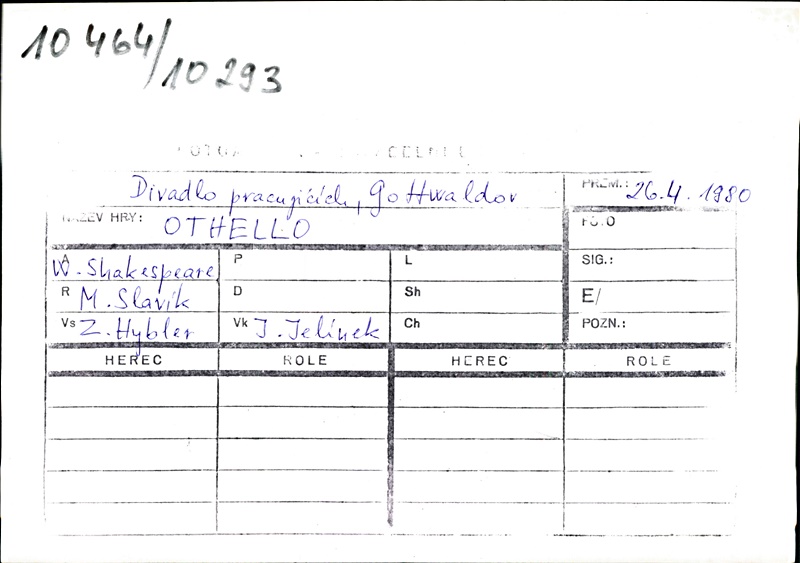 10 464/
10 293
Divadlo pracujících, Gottwaldov
PREM.: 26.4. 1980
NÁZEV HRY: OTHELLO
FOTO
A W. Shakespeare P L SIG.:
R M. Slavík D Sh E/
Vs Z. Hybler Vk J. Jelínek Ch POZN.:
HEREC ROLE HEREC ROLE